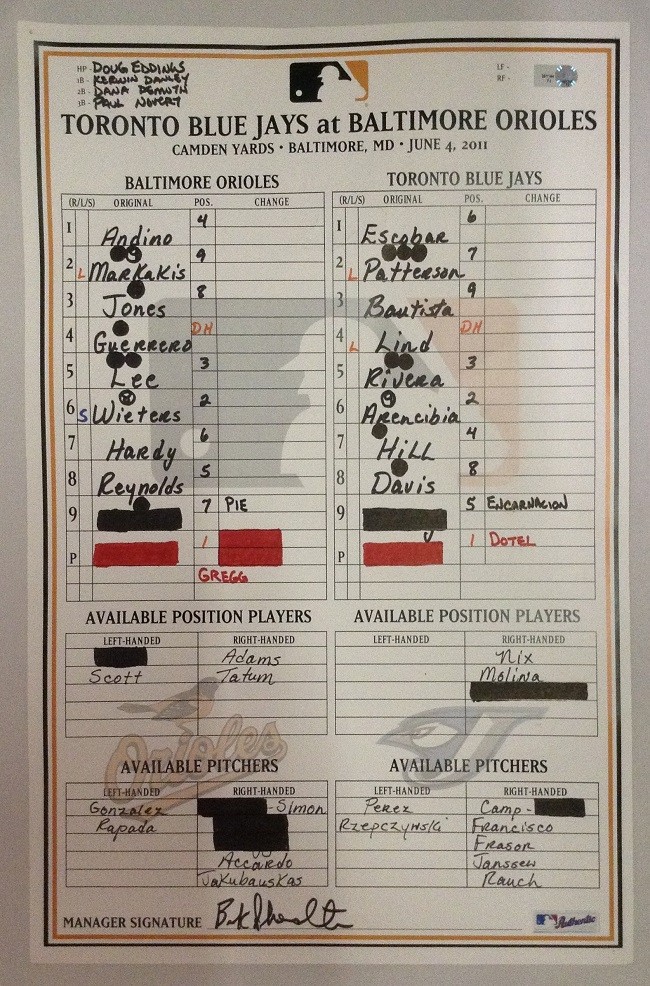 HP - DOUG EDDINGS
1B - KERWIN DANLEY
2B - DANA DEMUTH
3B - PAUL NAUERT
LF -
RF -
TORONTO BLUE JAYS at BALTIMORE ORIOLES
CAMDEN YARDS • BALTIMORE, MD • JUNE 4, 2011
BALTIMORE ORIOLES
(R/L/S) ORIGINAL POS. CHANGE
1 Andino 4
2 L Markakis 9
3 Jones 8
4 Guerrero DH
5 Lee 3
6 S Wieters 2
7 Hardy 6
8 Reynolds 5
9 7 PIE
P 1
GREGG
TORONTO BLUE JAYS
(R/L/S) ORIGINAL POS. CHANGE
1 Escobar 6
2 L Patterson 7
3 Bautista 9
4 L Lind DH
5 Rivera 3
6 Arencibia 2
7 Hill 4
8 Davis 8
9 5 ENCARNACION
P 1 DOTEL
AVAILABLE POSITION PLAYERS
LEFT-HANDED RIGHT-HANDED
Adams
Scott Tatum
AVAILABLE POSITION PLAYERS
LEFT-HANDED RIGHT-HANDED
Nix
Molina
Orioles
AVAILABLE PITCHERS
LEFT-HANDED RIGHT-HANDED
Gonzalez -Simon
Rapada
Accardo
Jakubauskas
AVAILABLE PITCHERS
LEFT-HANDED RIGHT-HANDED
Perez Camp-
Rzepczynski Francisco
Frasor
Janssen
Rauch
MANAGER SIGNATURE
Authentic